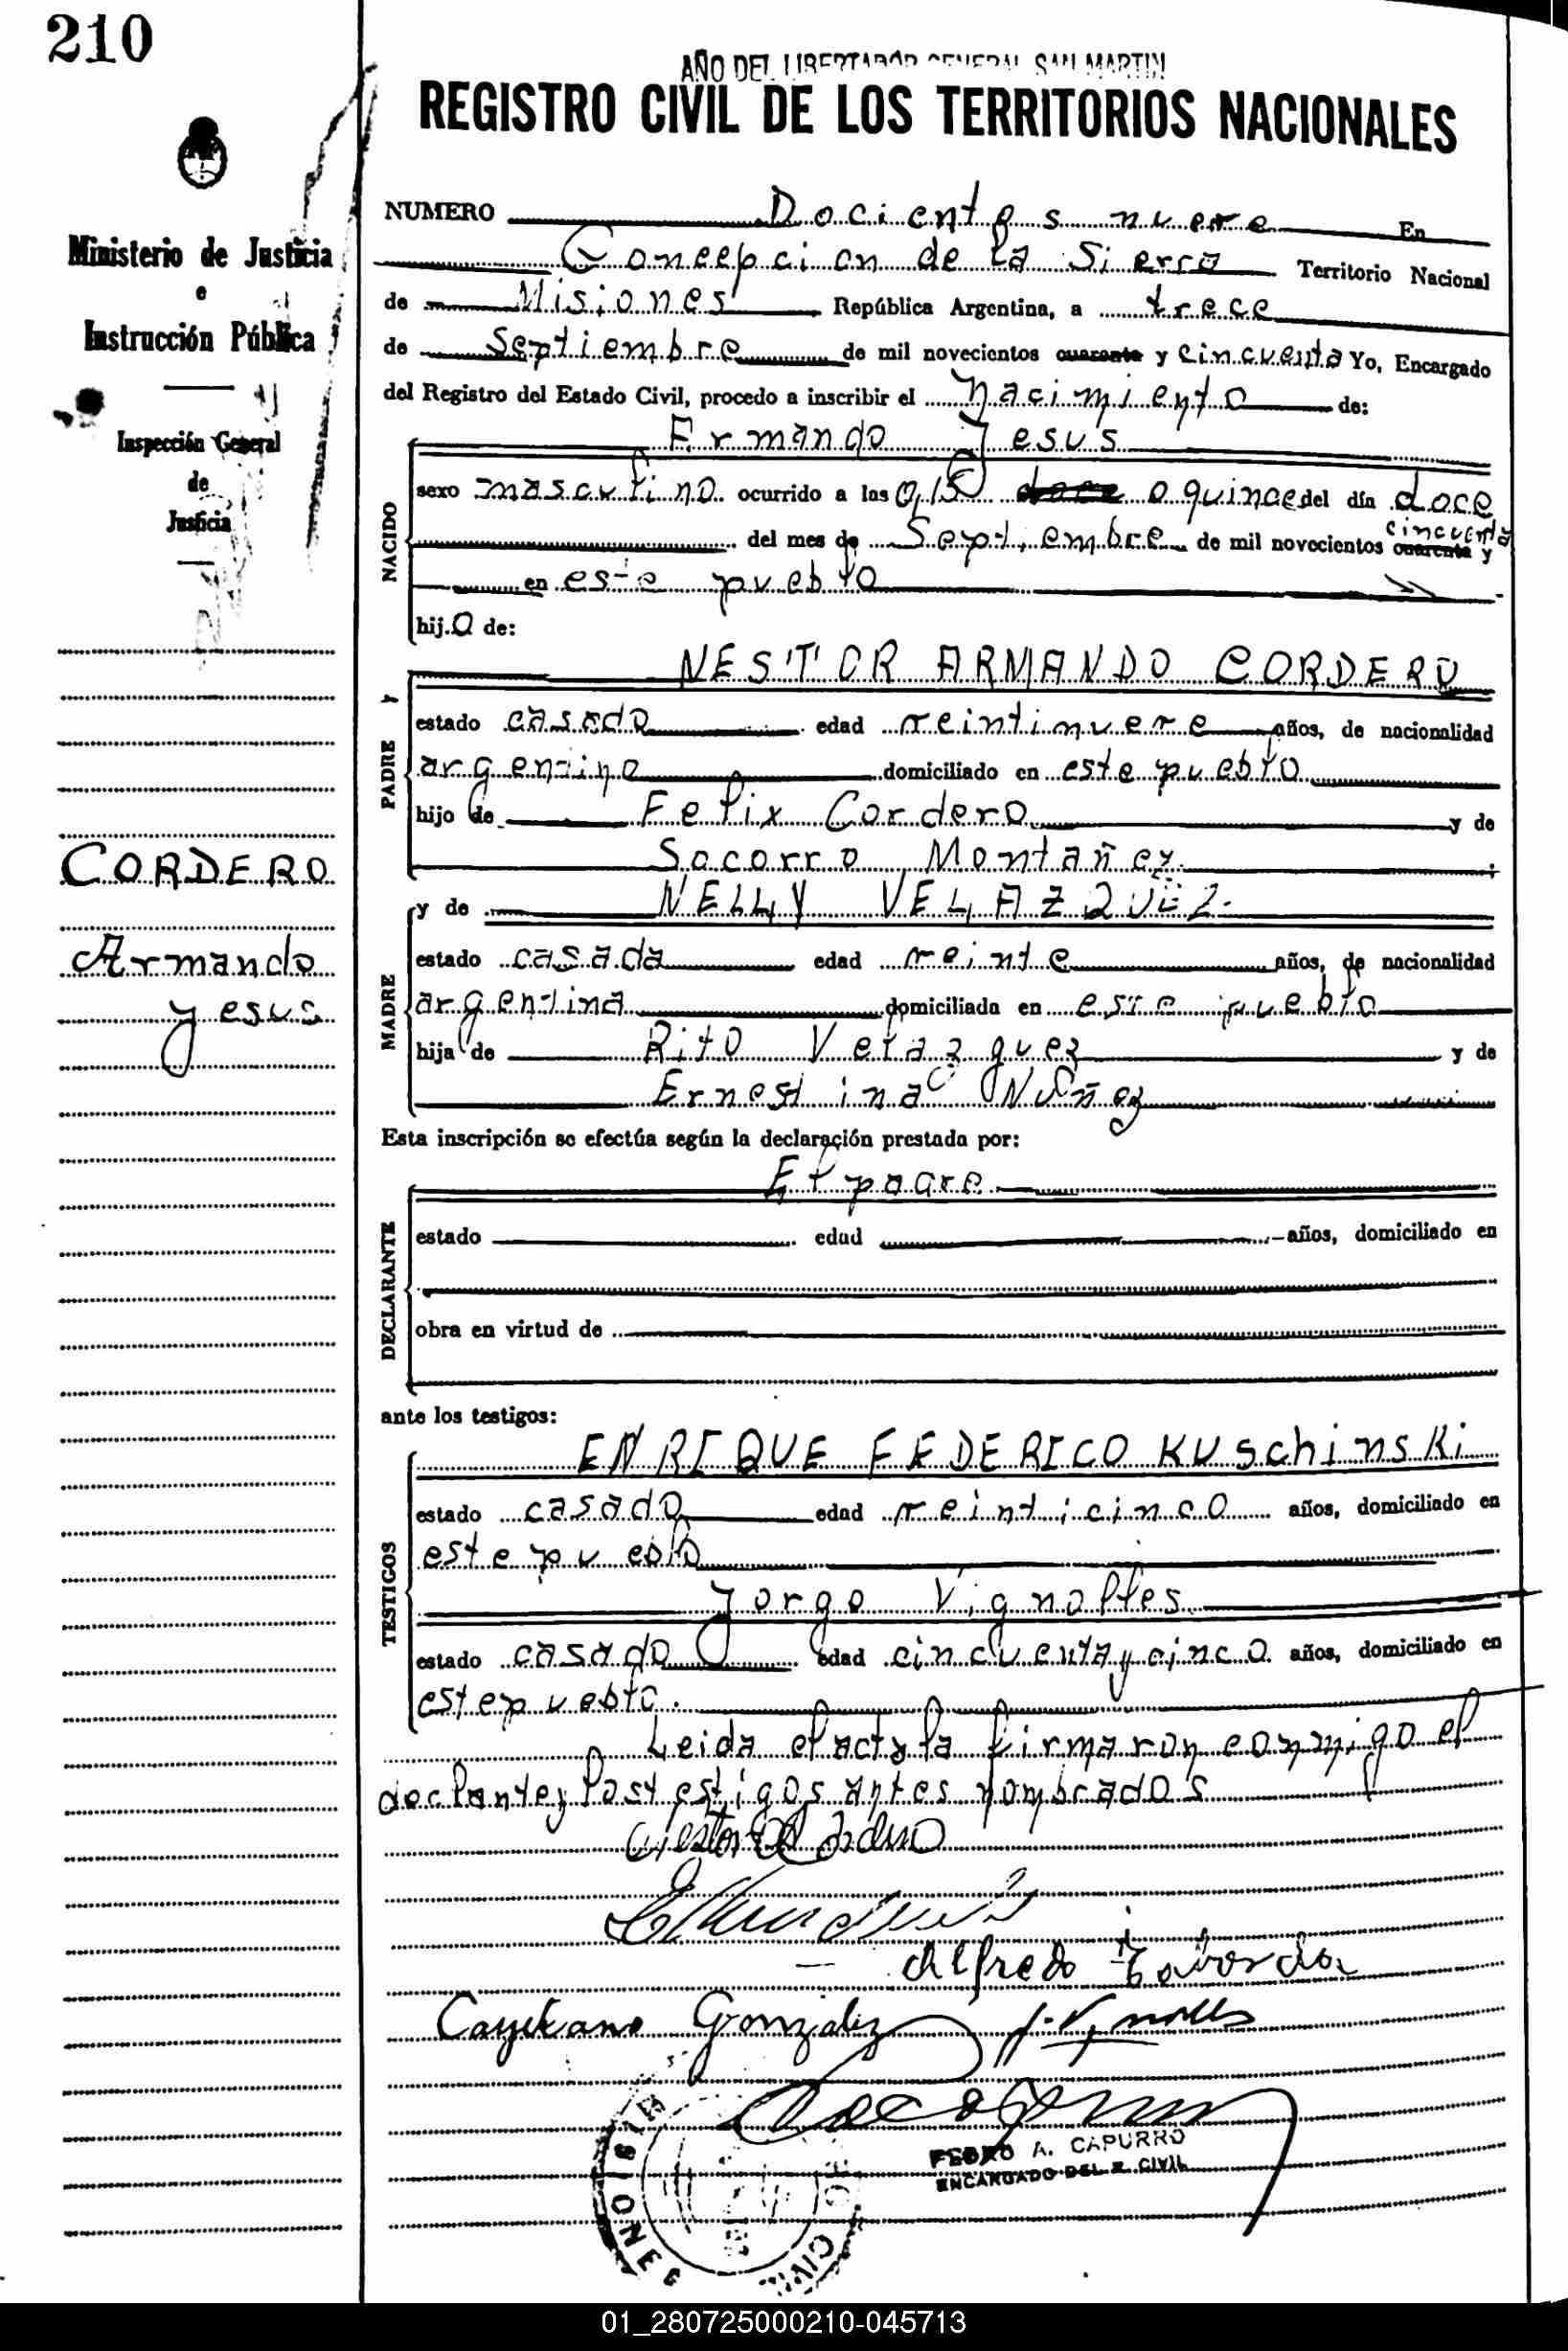 210
AÑO DEL LIBERTADOR GENERAL SAN MARTIN
REGISTRO CIVIL DE LOS TERRITORIOS NACIONALES
Ministerio de Justicia
e
Instrucción Pública
Inspección General
de
Justicia
CORDERO
Armando
Jesus
NUMERO Docientos nueve En
Concepcion de la Sierra Territorio Nacional
de Misiones República Argentina, a trece
de Septiembre de mil novecientos cuarenta y cincuenta Yo, Encargado
del Registro del Estado Civil, procedo a inscribir el nacimiento de:
Ermando Jesus
NACIDO
sexo masculino ocurrido a las 0,15 doce o quince del día doce
del mes de Septiembre de mil novecientos cuarenta y cincuenta
en este pueblo
hijo de:
NESTOR ARMANDO CORDERO
PADRE Y
estado casado edad veintinueve años, de nacionalidad
argentino domiciliado en este pueblo
hijo de Felix Cordero y de
Socorro Montañez ;
y de NELLY VELAZQUEZ.
MADRE
estado casada edad veinte años, de nacionalidad
argentina domiciliada en este pueblo
hija de Rito Velazquez y de
Ernestina Nuñez
Esta inscripción se efectúa según la declaración prestada por:
El padre
DECLARANTE
estado edad años, domiciliado en
obra en virtud de
ante los testigos:
ENRIQUE FEDERICO KUschinsKi
TESTIGOS
estado casado edad veinticinco años, domiciliado en
este pueblo
Jorge Vignolles
estado casado edad cincuenta y cinco años, domiciliado en
este pueblo.
Leida el acta la firmaron conmigo el
declante y los testigos antes nombrados
Alfredo Taborda
Cayetano Gonzalez J. Vignolles
PEDRO A. CAPURRO
ENCARGADO DEL R. CIVIL
MISIONES
CIVIL
01_280725000210-045713